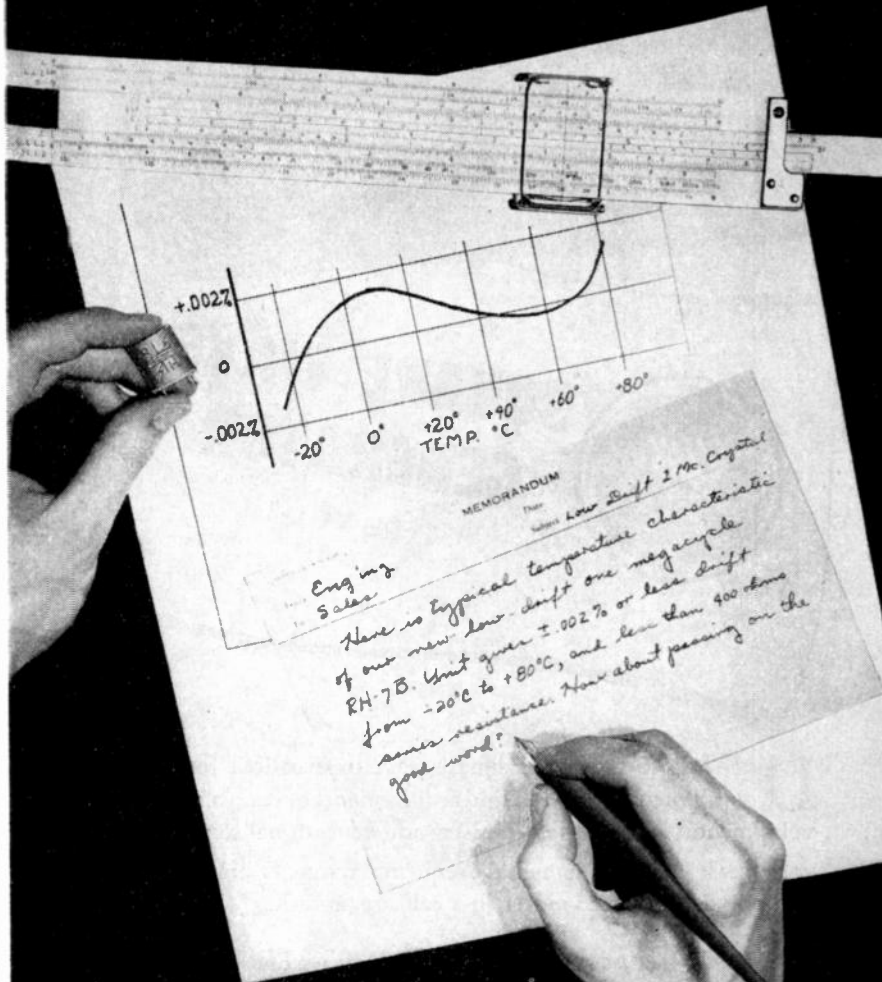 +.002%
0
-.002%
-20° 0° +20° +40° +60° +80°
TEMP. °C
MEMORANDUM
Date
Subject Low Drift 1 Mc. Crystal
Eng'ing
Sales
Here is typical temperature characteristic
of our new low-drift one megacycle
RH-7B. Unit gives ±.002% or less drift
from -20°C to +80°C, and less than 400 ohms
series resistance. How about passing on the
good word?